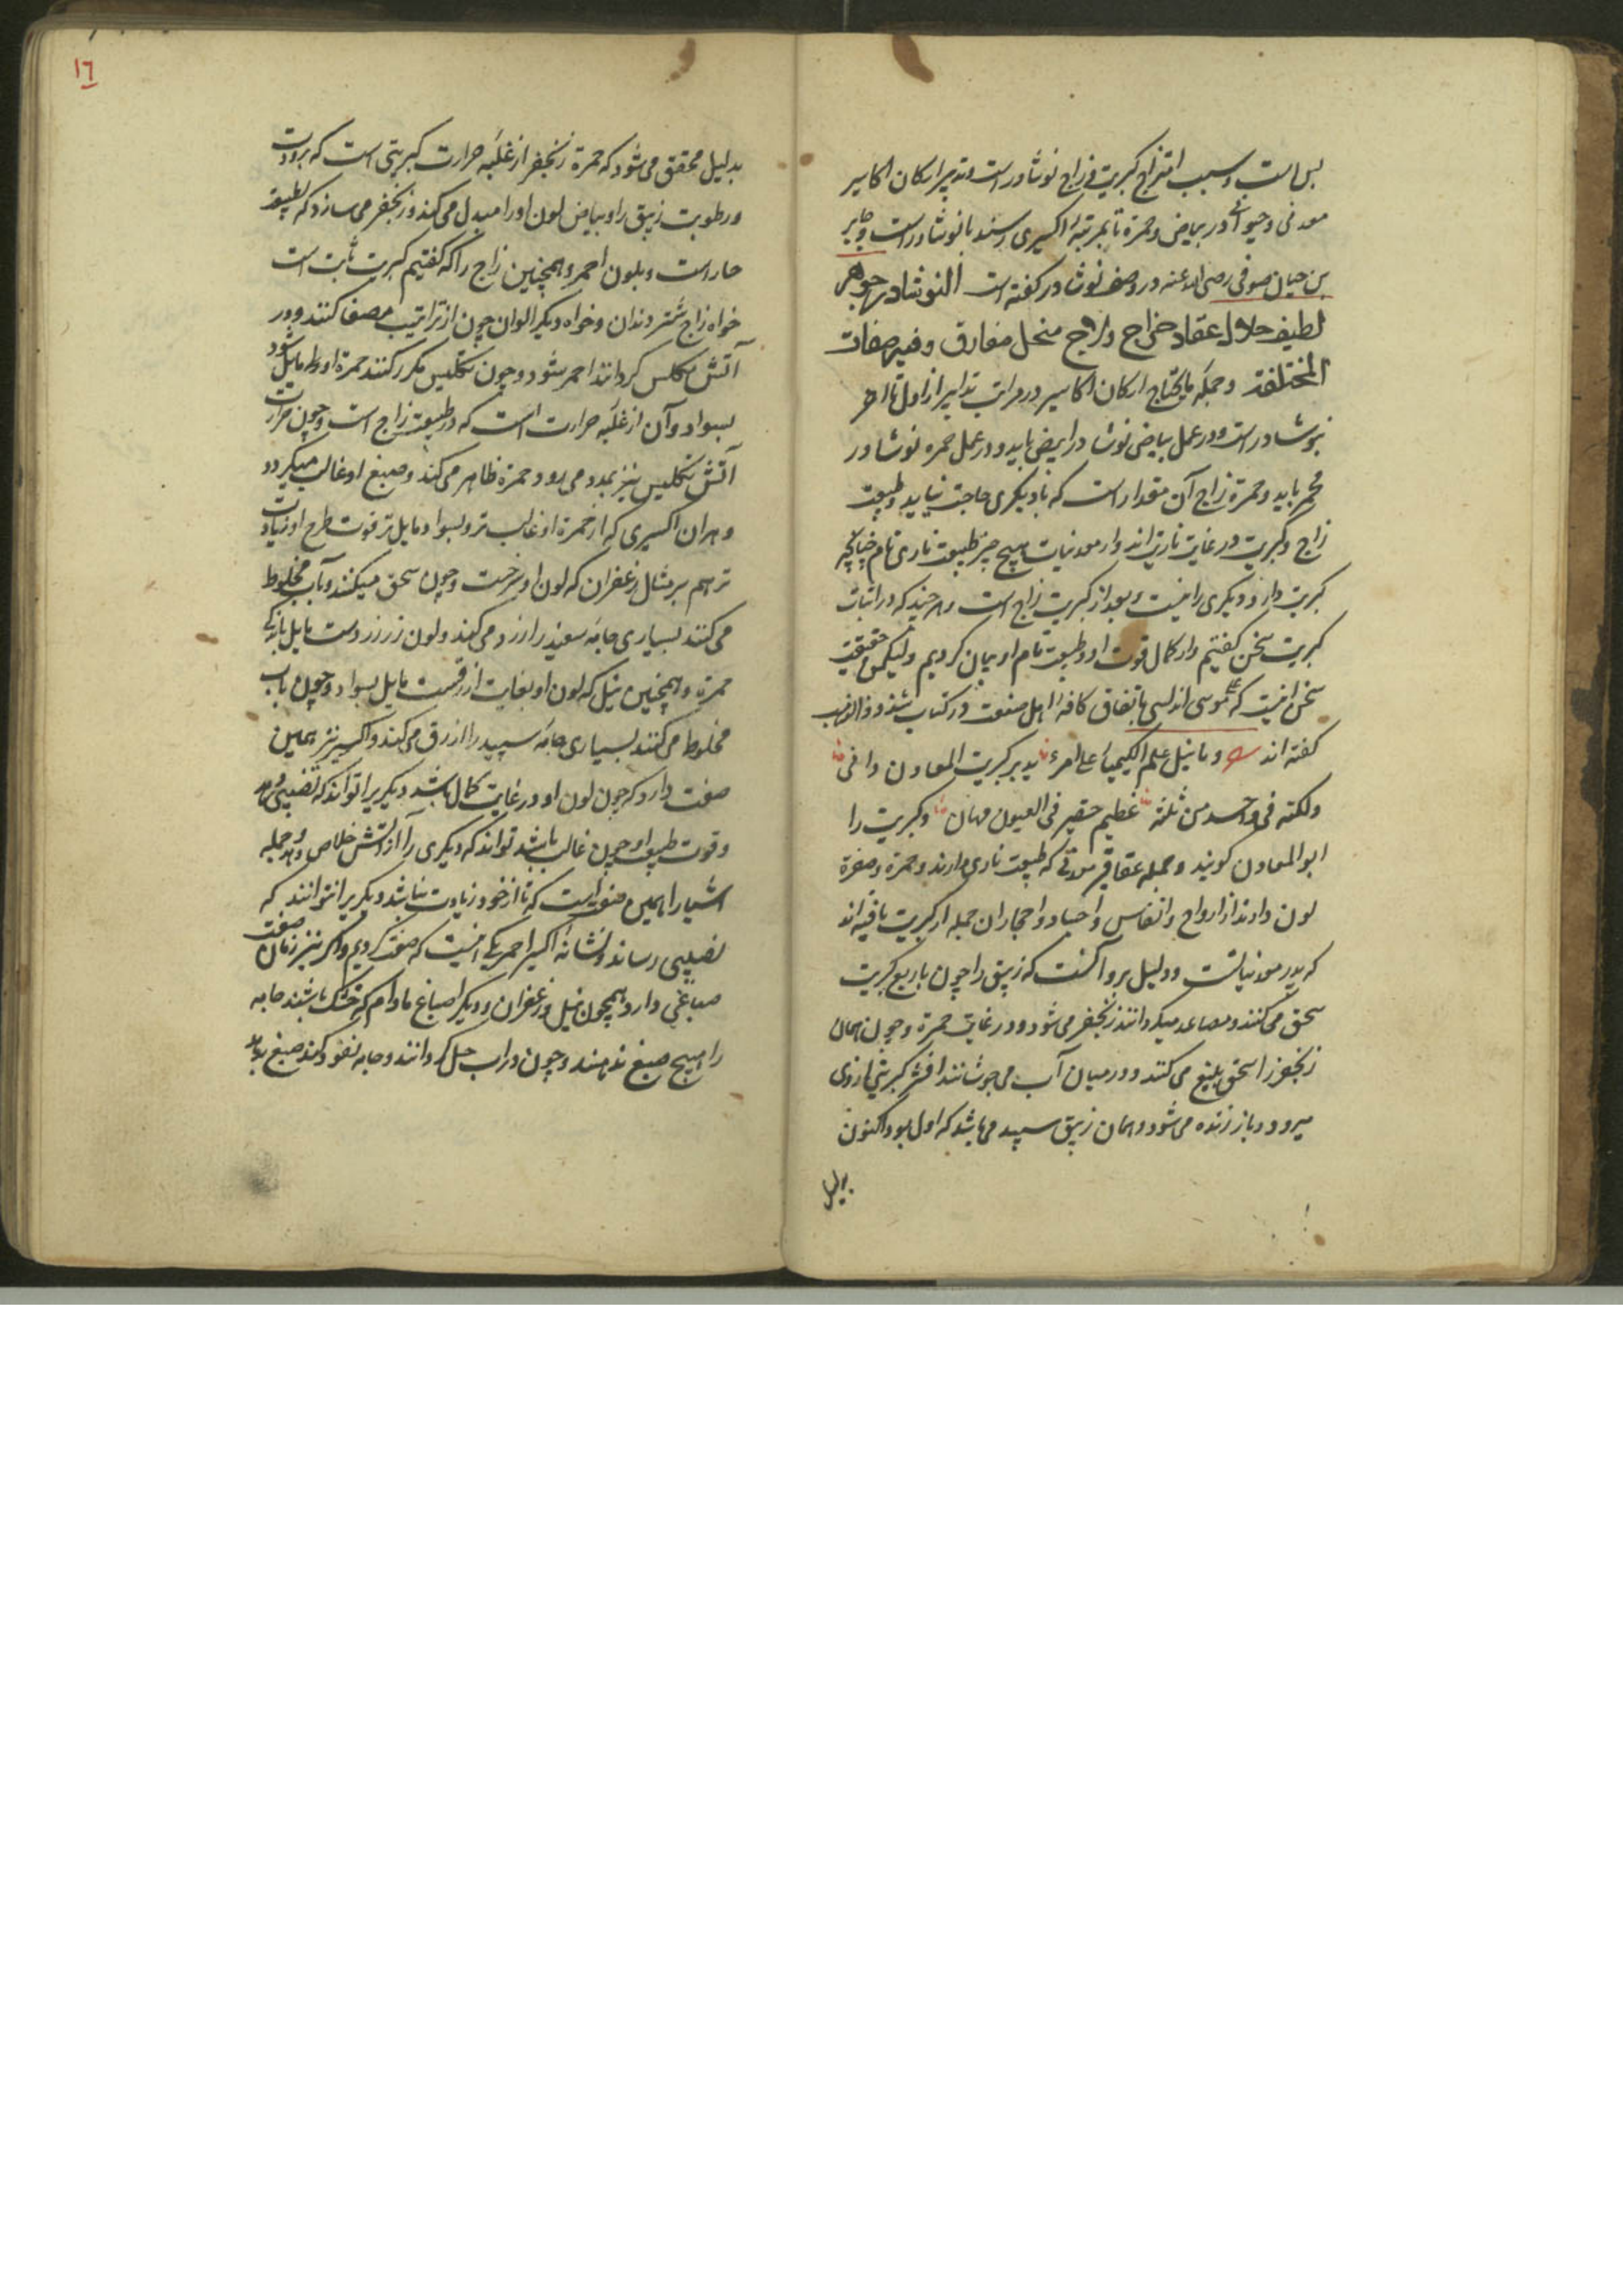 بس است و سبب امتزاج کبریت و زاج نوشادر است و تدبیر ارکان اکاسیر
معدنی و حیوانی در بیاض و حمرة تا بمرتبهٔ اکسیری رسند با نوشادر است و جابر
بن حیان صوفی رضی الله عنه در وصف نوشادر گفته است النوشادر جوهر
لطیف حلال عقاد خراج ولاج منحل مفارق وفیه صفات
المختلفة و جمله مایحتاج ارکان اکاسیر در مراتب تدابیر از اول تا آخر
نوشادر است و در عمل بیاض نوشادر ابیض باید و در عمل حمره نوشادر
محمر باید و حمرة زاج آن مقدار است که با دیگری حاجت نیاید و طبیعت
زاج و کبریت در غایت ناریت‌اند و از معدنیات هیچ چیز طبیعت ناری تمام چنانچه
کبریت دارد دیگری را نیست و بعد از کبریت زاج است و هر چند که در اثبات
کبریت سخن گفتیم و از کمال قوت او و طبیعت تمام او بیان کردیم ولیکن حقیقت
سخن اینست که علی موسی اندلسی باتفاق کافهٔ اهل صنعت در کتاب شذور الذهب
گفته‌اند وما نیل علم الکیمیاء علی المرء بدبر کبریت المعادن دافی
ولکنه فی واحد من ثلثه عظیم حقیر فی العیون مهان و کبریت را
ابو المعادن گویند و جمله عقاقیر معدنی که طبیعت ناری دارند و حمرة و صفرة
لون دارند از ارواح و انفاس و اجساد و احجار ان جمله از کبریت یافته‌اند
که پدر معدنیاتست و دلیل برو آنست که زیبق را چون با ربع کبریت
سحق می‌کنند و مصاعد میگردانند زنجفر می‌شود و در غایت حمرة و چون همان
زنجفر را سحق بلیغ می‌کنند و در میان آب می‌جوشانند اثر کبریتی از وی
میرود و باز زنده می‌شود و همان زیبق سپید می‌باشد که اول بود اکنون
بدلیل
١٦
بدلیل محقق می‌شود که حمرة زنجفر از غلبه حرارت کبریتی است که برودت
و رطوبت زیبق را و بیاض لون او را مبدل می‌کند و زنجفر می‌سازد که طبیعت
حار است و بلون احمر و همچنین زاج را که گفتیم کبریت ثابت است
خواه زاج شتر دندان و خواه دیگر الوان چون از تراتیب مصفا کنند و در
آتش مکلس گردانند احمر شود و چون تکلیس مکرر کنند حمرة او مایل شود
بسواد و آن از غلبه حرارت است که در طبیعت زاج است و چون حرارت
آتش تکلیس نیز بمدد می‌رود حمرة ظاهر می‌کند و صبغ او غالب میگردد
و هر ان اکسیری که از حمرة او غالب تر و بسواد مایل تر قوت طرح او زیادت
تر هم بر مثال زعفران که لون او سرخست و چون سحق میکنند و بآب مخلوط
می‌کنند بسیاری جامه سفید را زرد می‌کند و لون زر زردست مایل باندکی
حمرة و همچنین نیل که لون او بغایت ازرقست مایل بسواد و چون بآب
مخلوط می‌کنند بسیاری جامه سپید را ازرق می‌کند و اکسیر نیز همین
صفت دارد که چون لون او در غایت کمال باشد دیگریرا تواند که نصیبی دهد
و قوت طبیعت او چون غالب باشد تواند که دیگری را از آتش خلاص دهد و جمله
اشیا را همین صفت است که تا از خود زیادت نباشد دیگریرا نتوانند که
نصیبی رساند و نشانهٔ اکسیر احمر یکی اینست که صفت کردیم و اکسیر نیز زمان صفت
صباغی دارد همچون نیل و زعفران و دیگر اصباغ مادام که خشک باشند جامه
را هیچ صبغ ندهند و چون در آب حل گردانند و جامه نفوذ کند صبغ بدهد